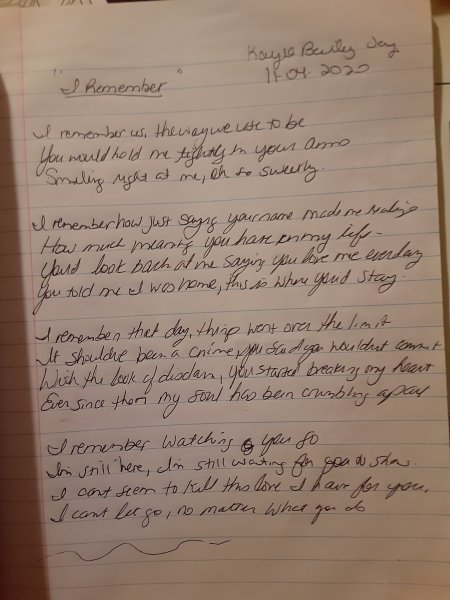 Kayla Bailey Jay
11.04.2020
"I Remember"
I remember us, the way we use to be
You would hold me tightly in your arms
Smiling right at me, oh so sweetly.
I remember how just saying your name made me realize
How much meaning you have in my life -
You'd look back at me saying you love me everyday
You told me I was home, this is where you'd stay.
I remember that day, things went over the limit
It should've been a crime, you said you wouldn't commit
With the look of disdain, you started breaking my heart
Ever since then my soul has been crumbling apart
I remember watching you go
I'm still here, I'm still waiting for you to show.
I can't seem to kill this love I have for you.
I can't let go, no matter what you do